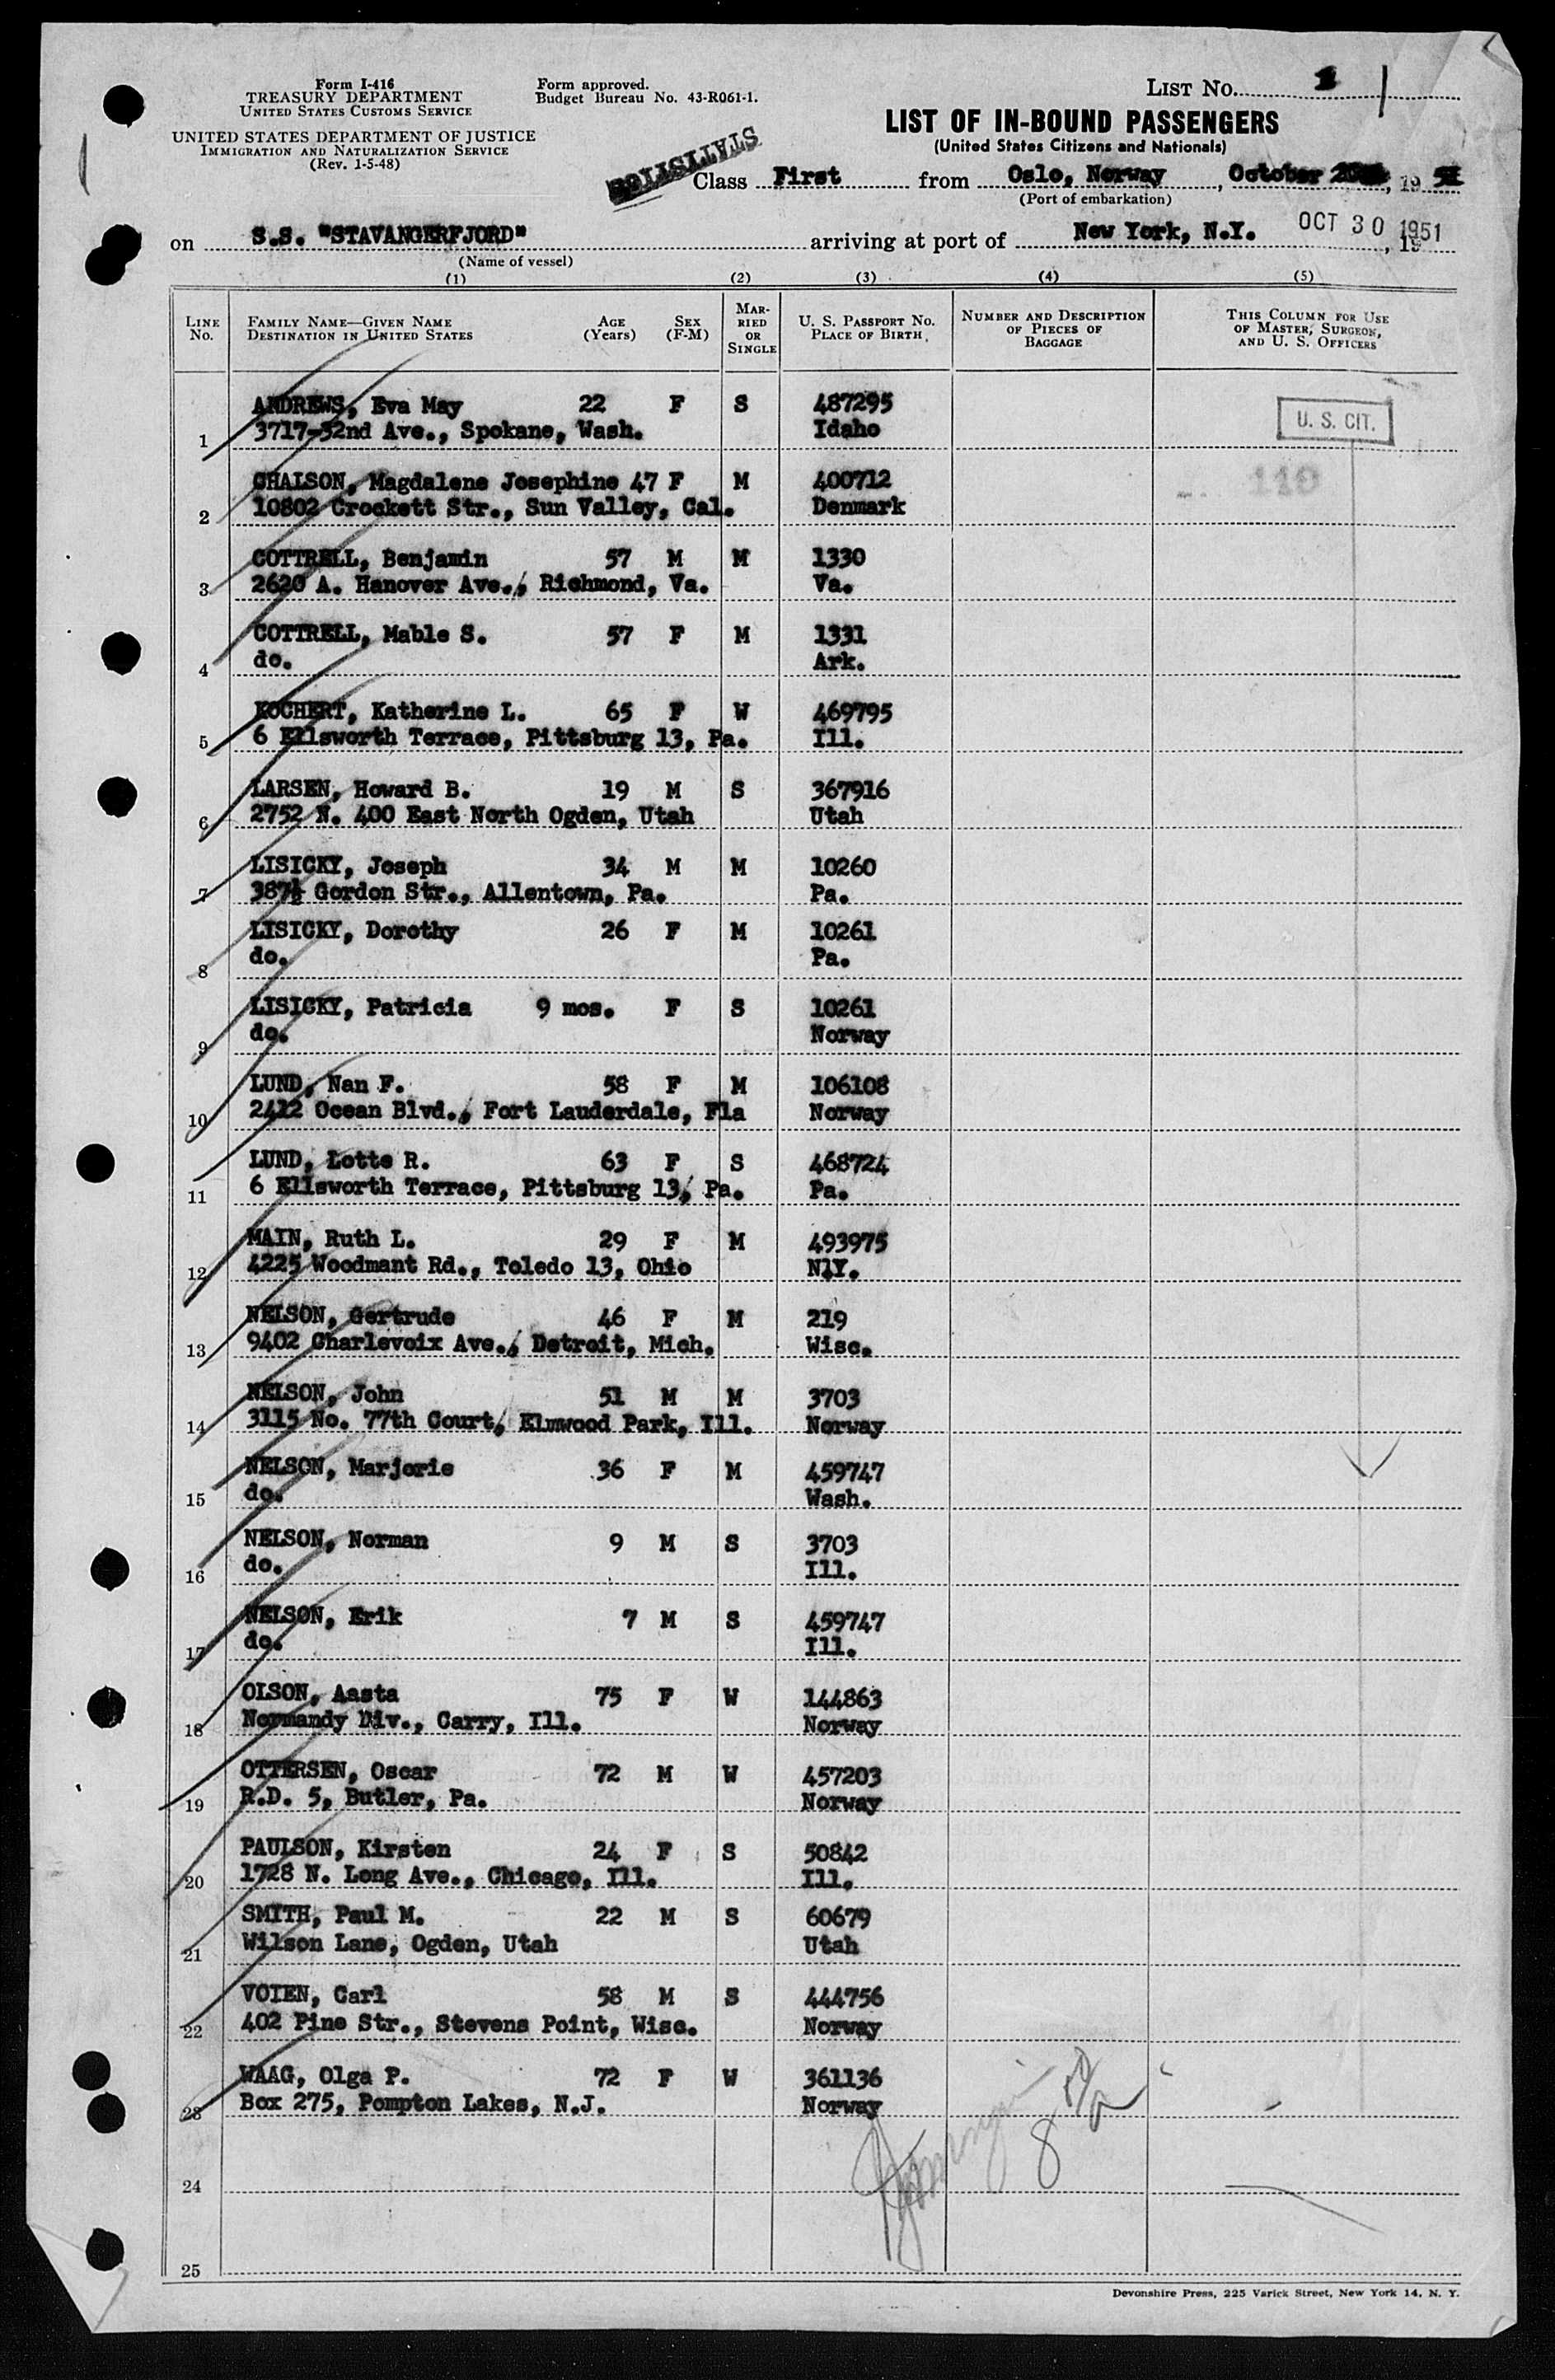 Form I-416
TREASURY DEPARTMENT
UNITED STATES CUSTOMS SERVICE
UNITED STATES DEPARTMENT OF JUSTICE
IMMIGRATION AND NATURALIZATION SERVICE
(Rev. 1-5-48)
Form approved.
Budget Bureau No. 43-R061-1.
LIST NO. 1
LIST OF IN-BOUND PASSENGERS
(United States Citizens and Nationals)
STATISTICS
Class First from Oslo, Norway, October , 19 51
(Port of embarkation)
on S.S. "STAVANGERFJORD" arriving at port of New York, N.Y. OCT 30 1951, 19
(Name of vessel)
(1) (2) (3) (4) (5)
LINE NO. FAMILY NAME—GIVEN NAME DESTINATION IN UNITED STATES AGE (Years) SEX (F-M) MARRIED OR SINGLE U. S. PASSPORT NO. PLACE OF BIRTH NUMBER AND DESCRIPTION OF PIECES OF BAGGAGE THIS COLUMN FOR USE OF MASTER, SURGEON, AND U. S. OFFICERS
ANDREWS, Eva May 22 F S 487295
1 3717-32nd Ave., Spokane, Wash. Idaho U. S. CIT.
CHALSON, Magdalene Josephine 47 F M 400712 110
2 10802 Crockett Str., Sun Valley, Cal. Denmark
COTTRELL, Benjamin 57 M M 1330
3 2620 A. Hanover Ave., Richmond, Va. Va.
COTTRELL, Mable S. 57 F M 1331
4 do. Ark.
KOCHERT, Katherine L. 65 F W 469795
5 6 Ellsworth Terrace, Pittsburg 13, Pa. Ill.
LARSEN, Howard B. 19 M S 367916
6 2752 N. 400 East North Ogden, Utah Utah
LISICKY, Joseph 34 M M 10260
7 387½ Gordon Str., Allentown, Pa. Pa.
LISICKY, Dorothy 26 F M 10261
8 do. Pa.
LISICKY, Patricia 9 mos. F S 10261
9 do. Norway
LUND, Nan F. 58 F M 106108
10 2412 Ocean Blvd., Fort Lauderdale, Fla Norway
LUND, Lotte R. 63 F S 468724
11 6 Ellsworth Terrace, Pittsburg 13, Pa. Pa.
MAIN, Ruth L. 29 F M 493975
12 4225 Woodmant Rd., Toledo 13, Ohio N.Y.
NELSON, Gertrude 46 F M 219
13 9402 Charlevoix Ave., Detroit, Mich. Wisc.
NELSON, John 51 M M 3703
14 3115 No. 77th Court, Elmwood Park, Ill. Norway
NELSON, Marjorie 36 F M 459747
15 do. Wash.
NELSON, Norman 9 M S 3703
16 do. Ill.
NELSON, Erik 7 M S 459747
17 do. Ill.
OLSON, Aasta 75 F W 144863
18 Normandy Div., Carry, Ill. Norway
OTTERSEN, Oscar 72 M W 457203
19 R.D. 5, Butler, Pa. Norway
PAULSON, Kirsten 24 F S 50842
20 1728 N. Long Ave., Chicago, Ill. Ill.
SMITH, Paul M. 22 M S 60679
21 Wilson Lane, Ogden, Utah Utah
VOIEN, Carl 58 M S 444756
22 402 Pine Str., Stevens Point, Wisc. Norway
WAAG, Olga P. 72 F W 361136
23 Box 275, Pompton Lakes, N.J. Norway
24
25
Devonshire Press, 225 Varick Street, New York 14, N. Y.